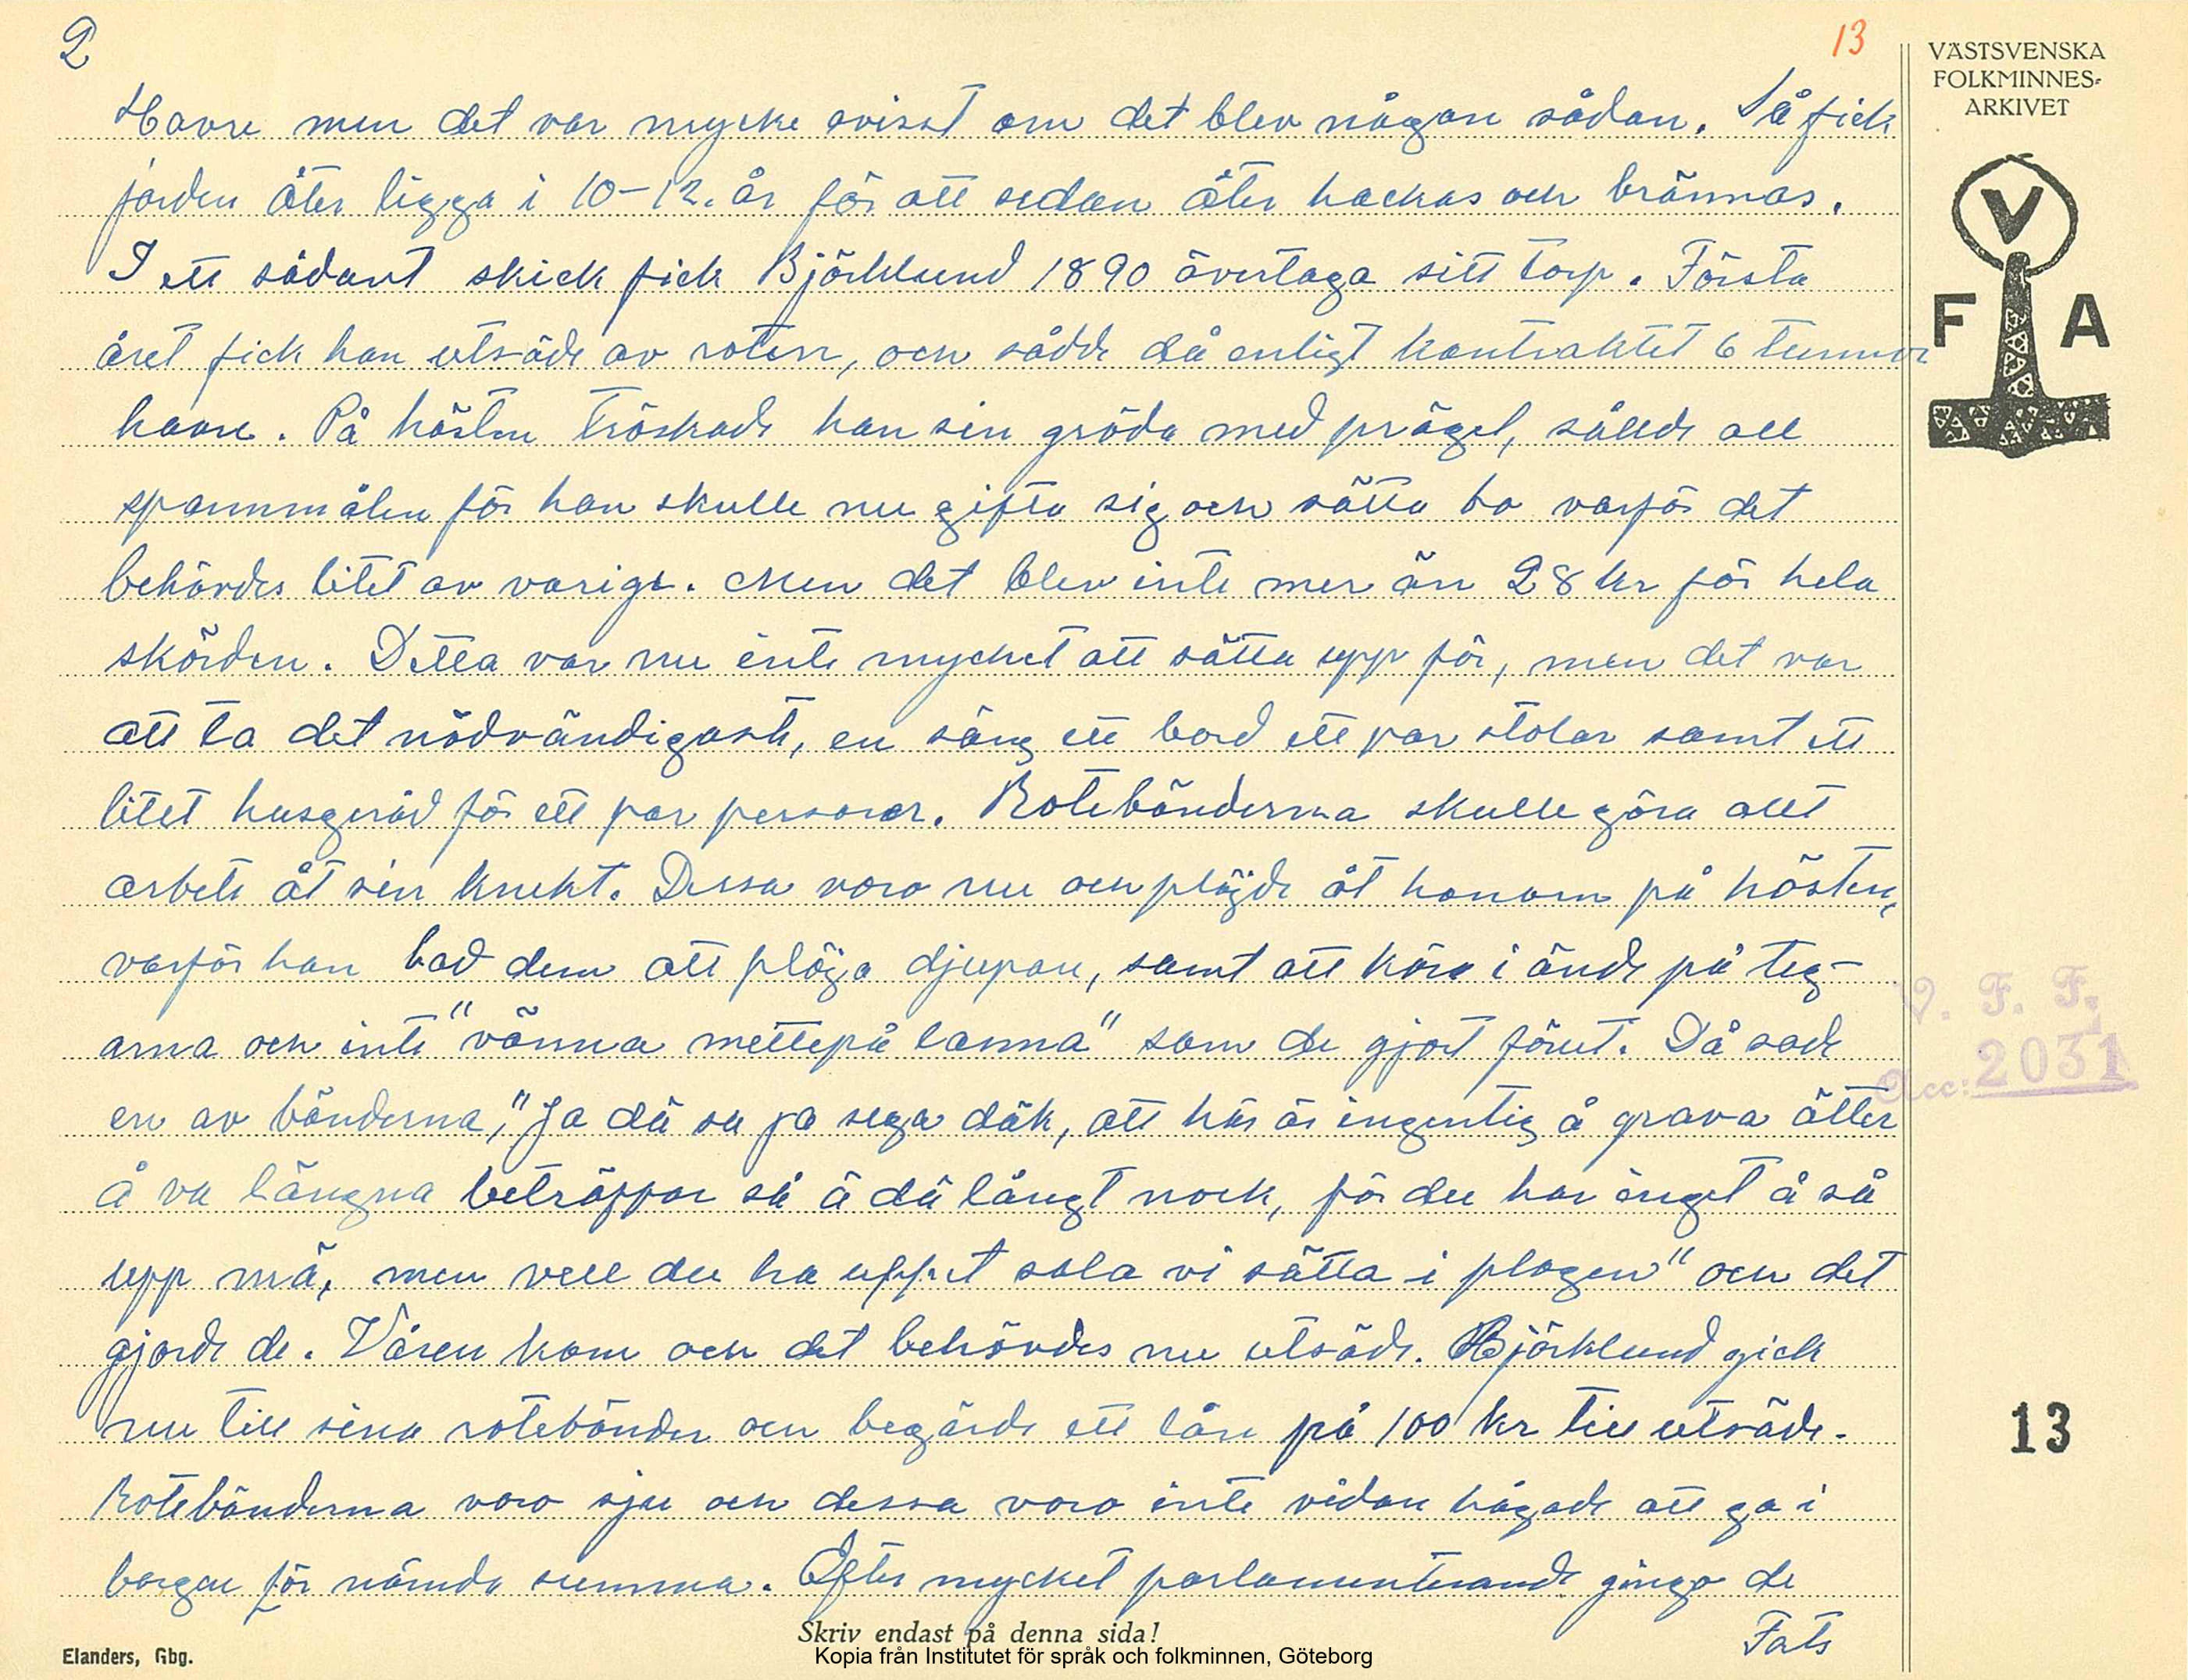 2
13
VÄSTSVENSKA
FOLKMINNES-
ARKIVET
V
F A
Havre men det var mycke ovisst om det blev någon sådan. Så fick
jorden åter ligga i 10-12. år för att sedan åter hackas och brännas.
I ett sådant skick fick Björklund 1890 övertaga sitt torp. Första
året fick han utsäde av roten, och sådde då enligt kontraktet 6 tunnor
havre. På hösten tröskade han sin gröda med prägel, sållde all
spannmålen för han skulle nu gifta sig och sätta bo varför det
behövdes litet av varige. Men det blev inte mer än 28 kr för hela
skörden. Detta var nu inte mycket att sätta upp för, men det var
att ta det nödvändigaste, en säng ett bord ett par stolar samt ett
litet husgeråd för ett par personer. Rotebönderna skulle göra allt
arbete åt sin knekt. Dessa voro nu och plöjde åt honom på hösten,
varför han bad dem att plöja djupare, samt att köra i ände på teg-
arna och inte "vänna mettepå lanna" som de gjort förut. Då sade
en av bönderna, "Ja dä sa ja sega däk, att här är ingenting å grava ätter
å va längna beträppar så ä dä långt nock, för du har inget å så
upp mä, men vell du ha uppet sola vi sätta i plogen" och det
gjorde de. Våren kom och det behövdes nu utsäde. Björklund gick
nu till sina rotebönder och begärde ett lån på 100 kr till utsäde.
Rotebönderna voro sju och dessa voro inte vidare hågade att ga i
borgen för nämda summa. Efter mycket parlamenterande gingo de
Fats
V. F. F.
Acc: 2031
13
Skriv endast på denna sida!
Elanders, Gbg.
Kopia från Institutet för språk och folkminnen, Göteborg